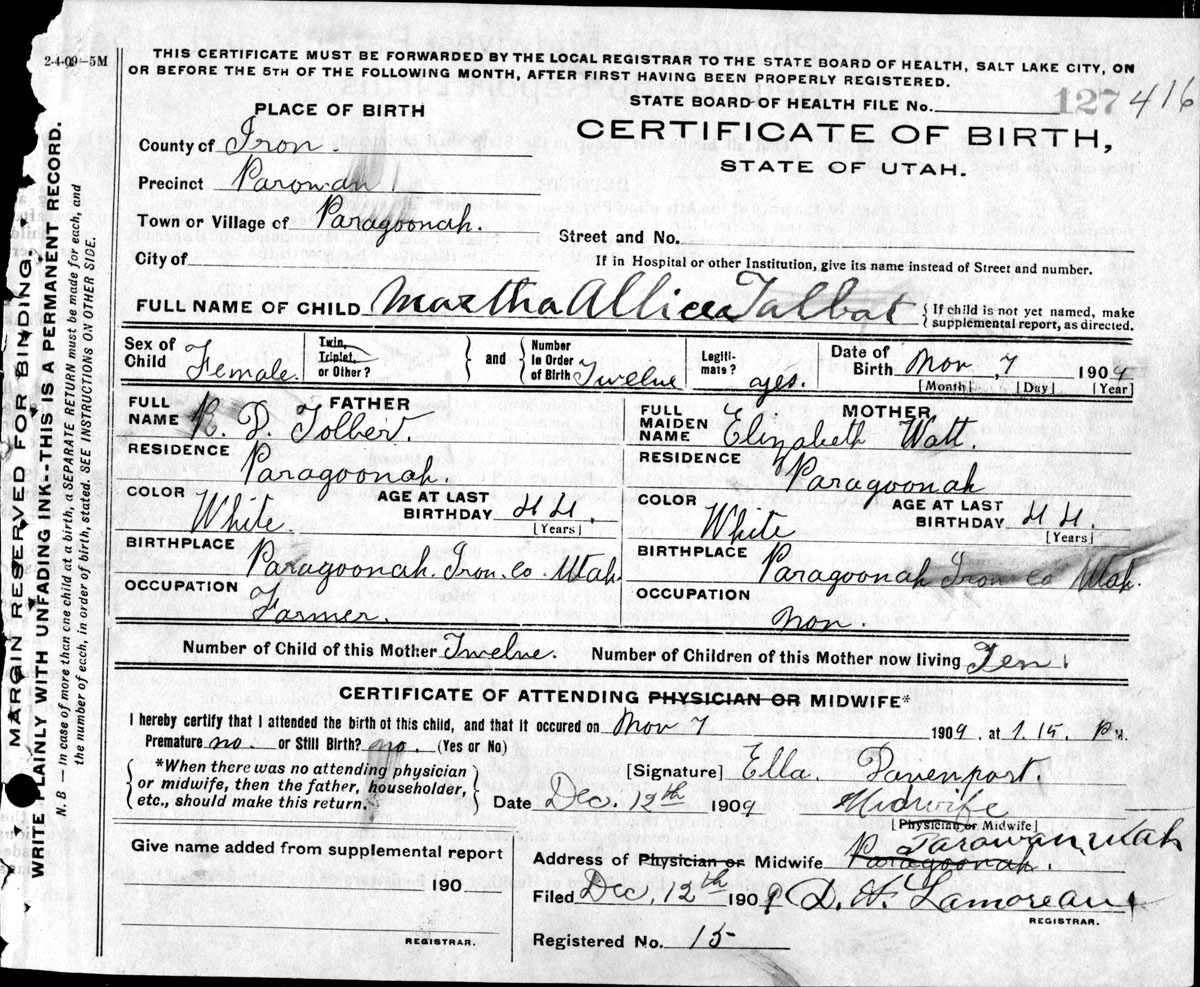 2-4-09-5M
THIS CERTIFICATE MUST BE FORWARDED BY THE LOCAL REGISTRAR TO THE STATE BOARD OF HEALTH, SALT LAKE CITY, ON
OR BEFORE THE 5TH OF THE FOLLOWING MONTH, AFTER FIRST HAVING BEEN PROPERLY REGISTERED.
STATE BOARD OF HEALTH FILE No. 127 416
PLACE OF BIRTH
CERTIFICATE OF BIRTH,
STATE OF UTAH.
County of Iron.
Precinct Parowan
Town or Village of Paragoonah.
Street and No.
City of
If in Hospital or other Institution, give its name instead of Street and number.
FULL NAME OF CHILD Martha Allice Talbat { If child is not yet named, make supplemental report, as directed.
Sex of Child Female. Twin, Triplet, or Other? } and { Number In Order of Birth Twelve Legiti-mate? yes. Date of Birth Nov, 7 1909
[Month] [Day] [Year]
FATHER
FULL NAME R. D. Tolbert.
RESIDENCE Paragoonah.
COLOR White. AGE AT LAST BIRTHDAY 44.
[Years]
BIRTHPLACE Paragoonah. Iron. Co. Utah.
OCCUPATION Farmer.
MOTHER
FULL MAIDEN NAME Elizabeth Watt.
RESIDENCE Paragoonah
COLOR White AGE AT LAST BIRTHDAY 44.
[Years]
BIRTHPLACE Paragoonah Iron co Utah.
OCCUPATION non.
Number of Child of this Mother Twelve. Number of Children of this Mother now living Ten
CERTIFICATE OF ATTENDING PHYSICIAN OR MIDWIFE*
I hereby certify that I attended the birth of this child, and that it occured on Nov 7 1909. at 1.15. P M.
Premature no. or Still Birth? no. (Yes or No)
{ *When there was no attending physician
or midwife, then the father, householder,
etc., should make this return. }
[Signature] Ella. Davenport.
Date Dec. 12th 1909 Midwife
[Physician or Midwife]
Parowan, Utah
Address of Physician or Midwife Paragoonah.
Filed Dec, 12th 1909 D. H. Lamoreau
REGISTRAR.
Registered No. 15
Give name added from supplemental report
190
REGISTRAR.
MARGIN RESERVED FOR BINDING.
WRITE PLAINLY WITH UNFADING INK--THIS IS A PERMANENT RECORD.
N. B — In case of more than one child at a birth, a SEPARATE RETURN must be made for each, and
the number of each, in order of birth, stated. SEE INSTRUCTIONS ON OTHER SIDE.